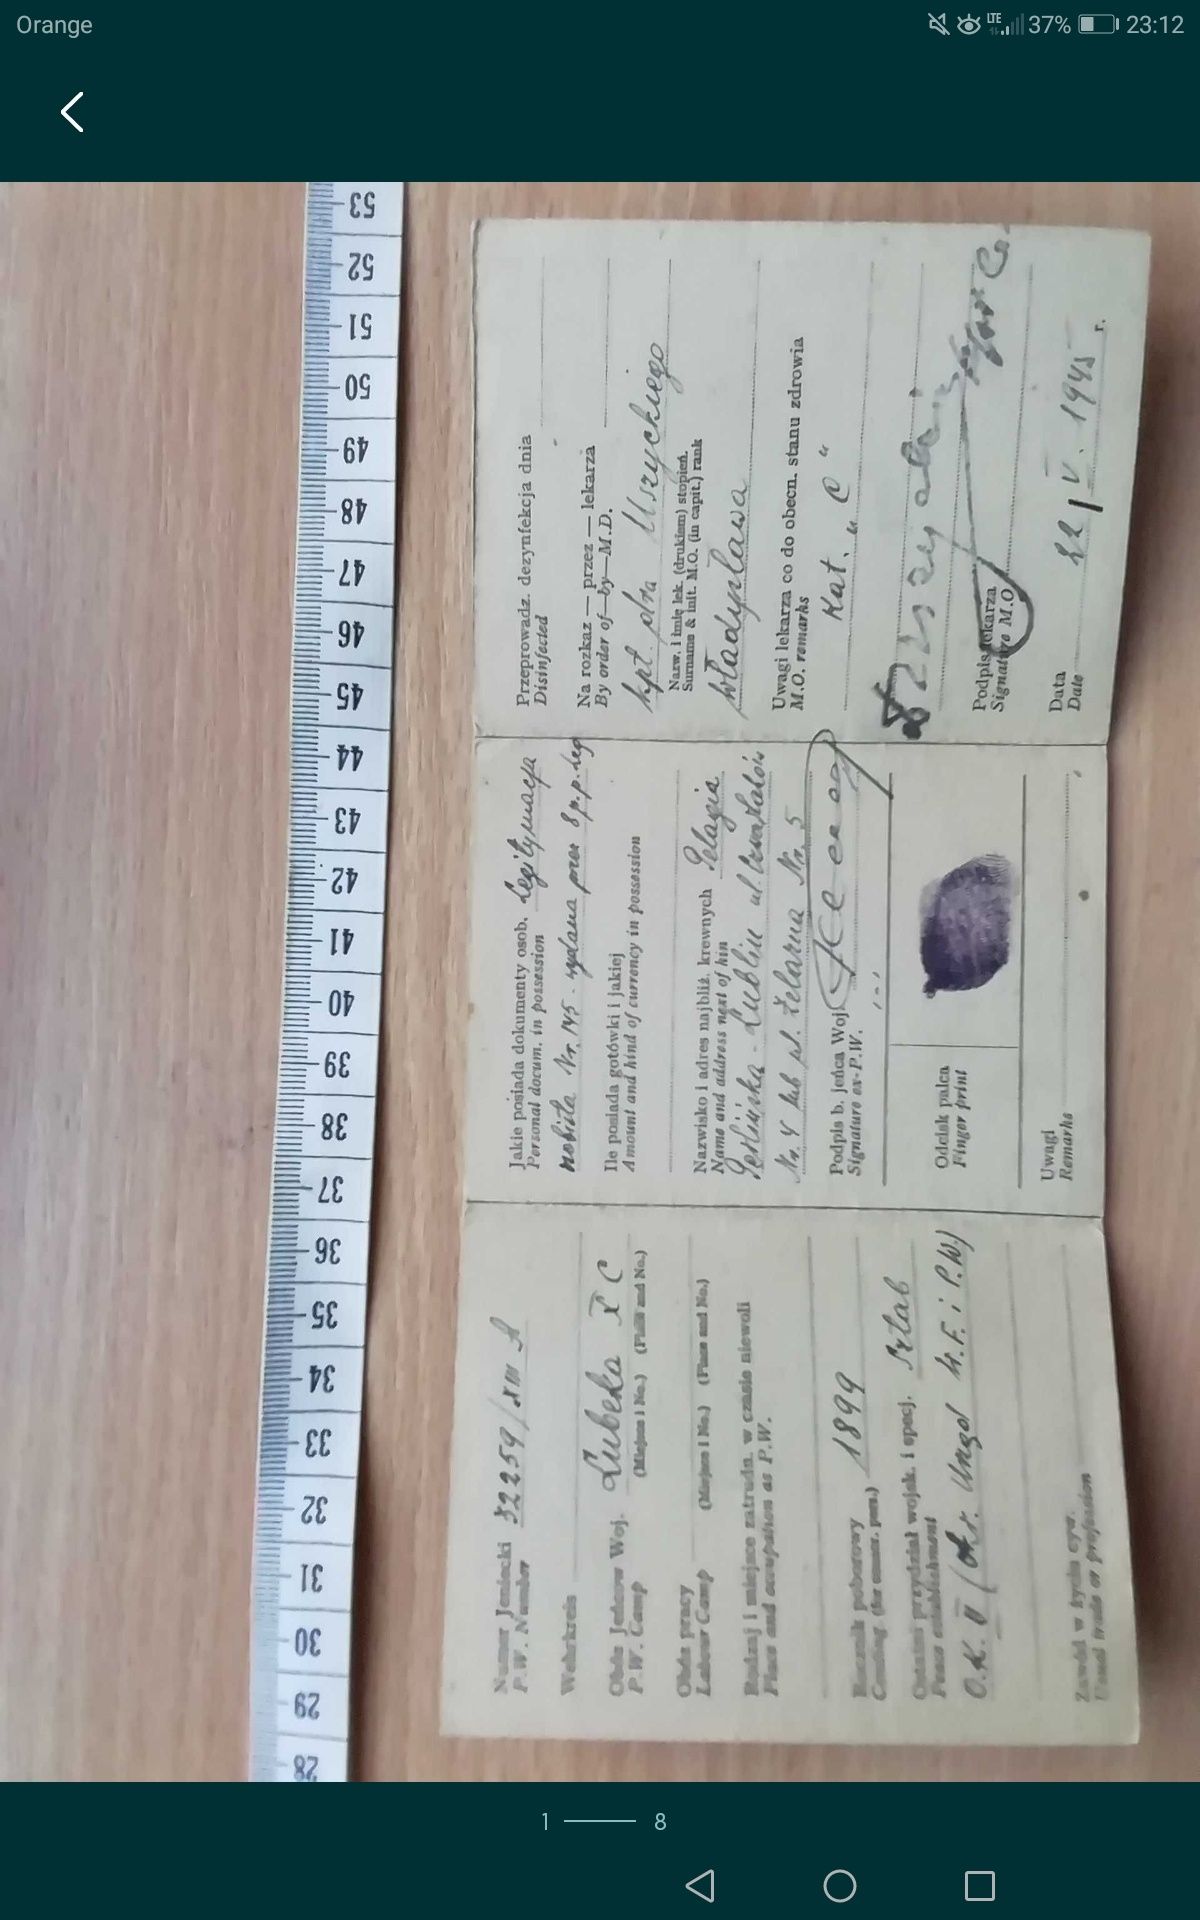 Orange
37% 23:12
53
52
51
50
49
48
47
46
45
44
43
42
41
40
39
38
37
36
35
34
33
32
31
30
29
28
Numer Jeniecki 32259/XIII A
P.W. Number
Wehrkreis
Obóz Jeńców Woj. Lubeka X C
P.W. Camp (Miejsce i No.) (Place and No.)
Obóz pracy
Labour Camp (Miejsce i No.) (Place and No.)
Rodzaj i miejsce zatrudn. w czasie niewoli
Place and occupation as P.W.
Rocznik poborowy 1899
Conting. (for enum. pur.)
Ostatni przydział wojsk. i specj. Sztab
Peace establishment
O.K. II (Okr. Urząd W.F. i P.W.)
Zawód w życiu cyw.
Usual trade or profession
Jakie posiada dokumenty osob. Legitymacja
Personal docum. in possession
Nr. 145 - wydana przez 8 p.p. Leg
Ile posiada gotówki i jakiej
Amount and kind of currency in possession
Nazwisko i adres najbliż. krewnych Pelagia
Name and address next of kin
Lublin ul.
Nr. 4 lub ul. Żelazna Nr. 5
Podpis b. jeńca Woj.
Signature ex-P.W.
Odcisk palca
Finger print
Uwagi
Remarks
Przeprowadz. dezynfekcja dnia
Disinfected
Na rozkaz — przez — lekarza
By order of—by—M.D.
kpt. dra Uszyckiego
Nazw. i imię lek. (drukiem) stopień.
Surname & init. M.O. (in capit.) rank
Władysława
Uwagi lekarza co do obecn. stanu zdrowia
M.O. remarks
Kat. „C"
Podpis lekarza
Signature M.O.
Data 22 / V. 1945 r.
Date
1 8